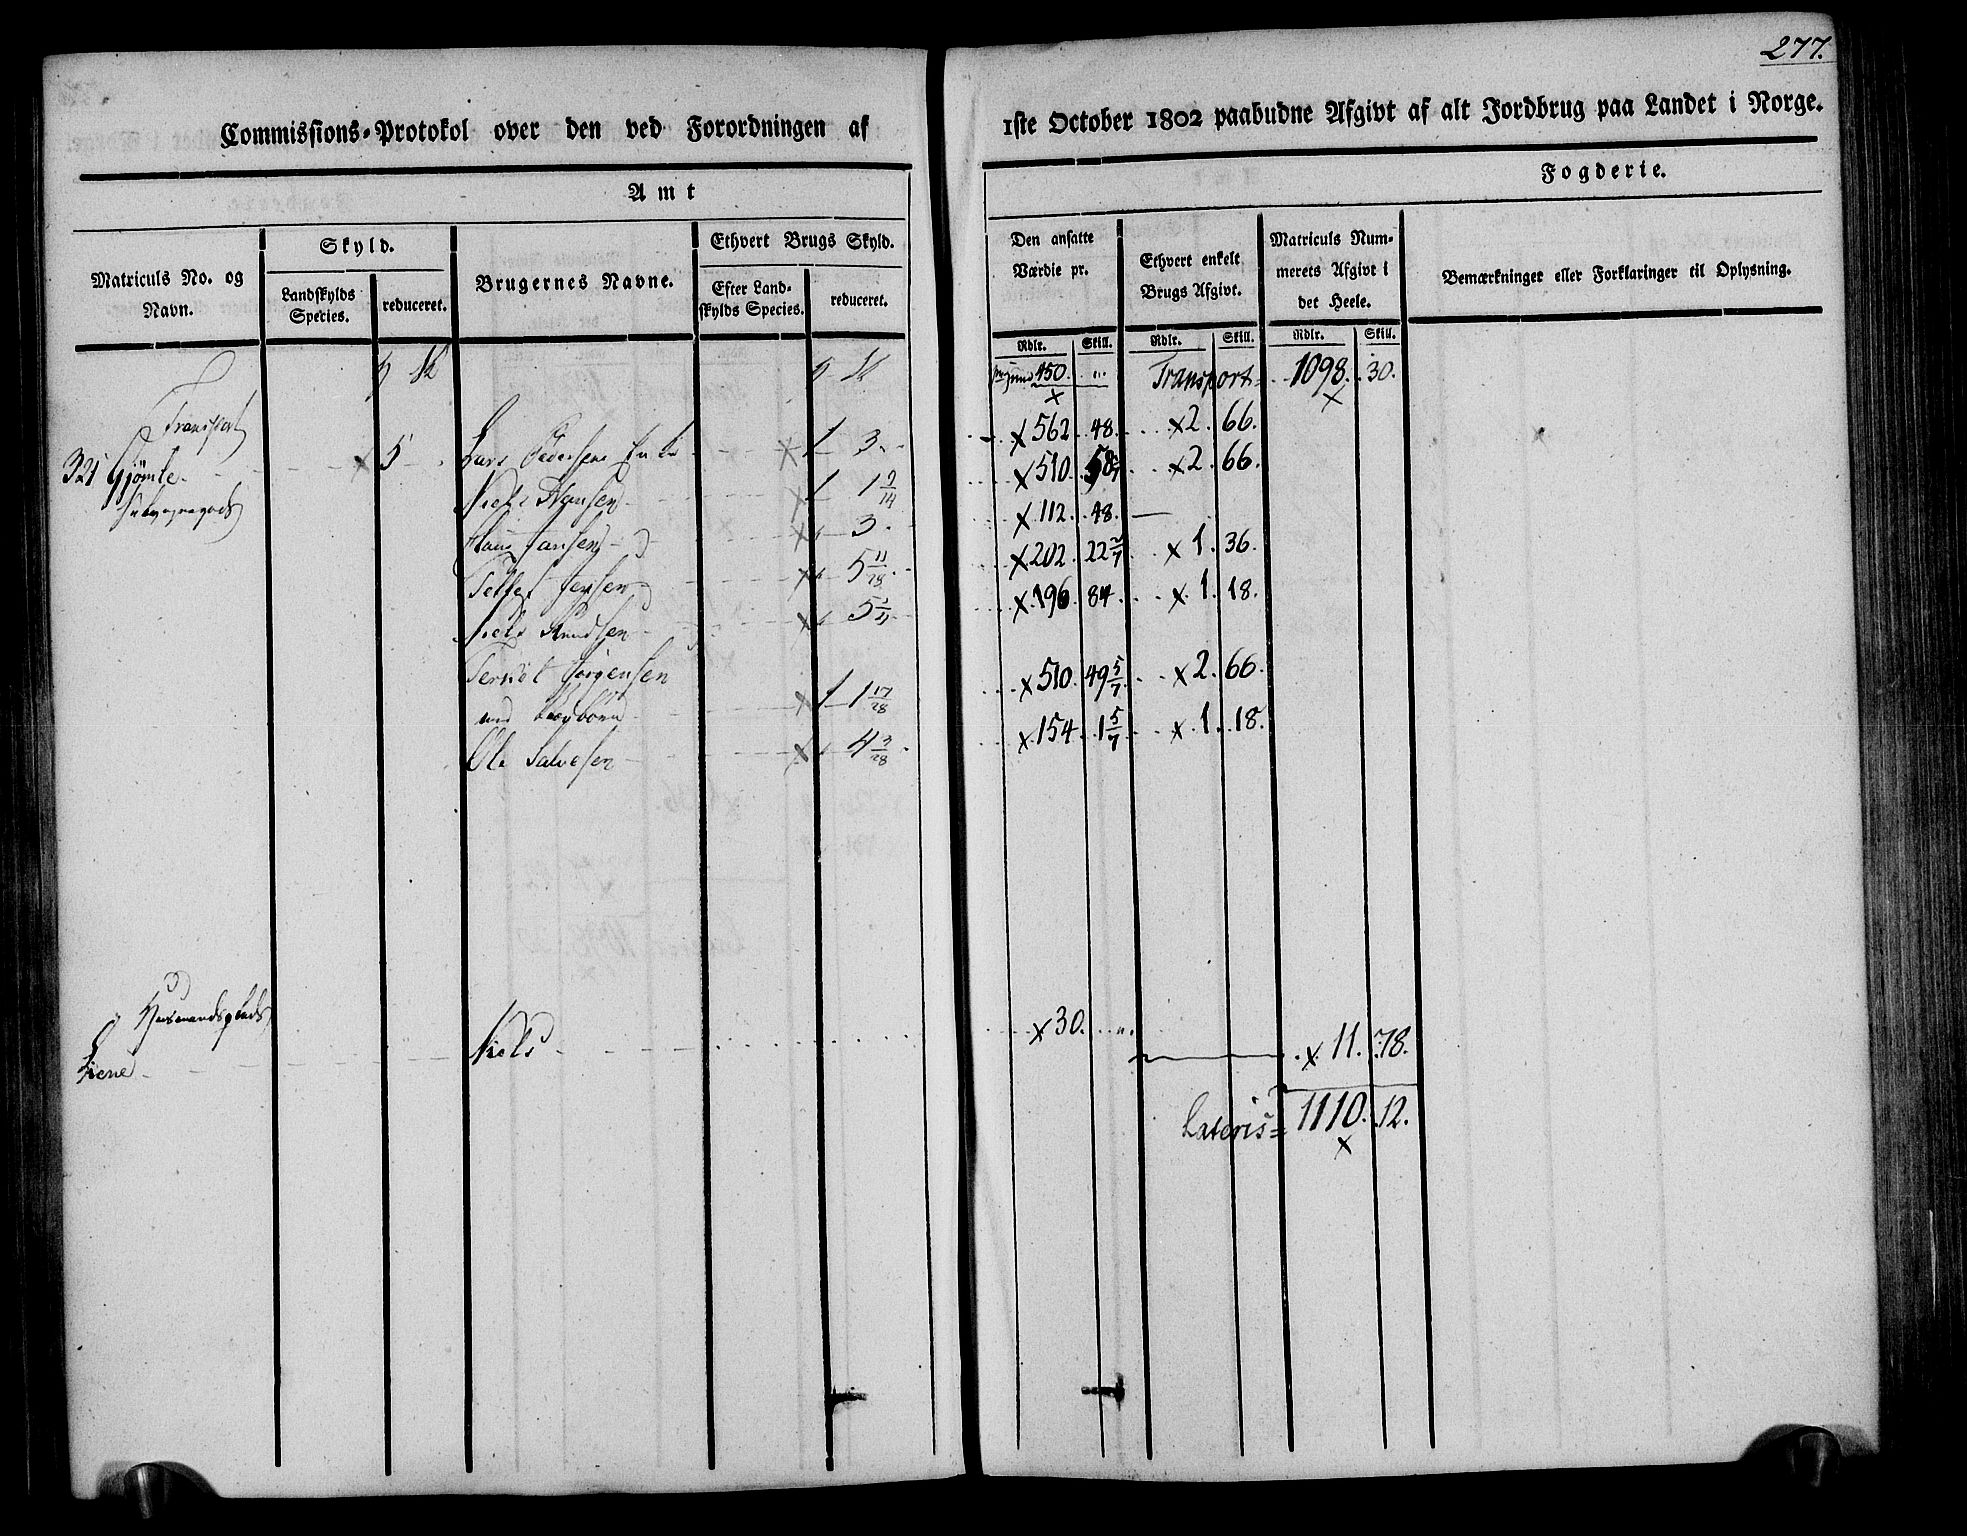 277.
Commissions-Protokol over den ved Forordningen af 1ste October 1802 paabudne Afgivt af alt Jordbrug paa Landet i Norge.
Amt
Fogderie.
Matriculs No. og Navn.
Skyld.
Landskylds Species.
reduceret.
Brugernes Navne.
Ethvert Brugs Skyld.
Efter Landskylds Species.
reduceret.
Den ansatte Værdie pr.
Rdlr. Skill.
Ethvert enkelt Brugs Afgivt.
Rdlr. Skill.
Matriculs Nummerets Afgivt i det Heele.
Rdlr. Skill.
Bemærkninger eller Forklaringer til Oplysning.
Transport 450. " Transport= 1098. 30.
321 Gjömle 5 Lars Pedersens 1 3 562. 48. 2. 66.
Niels Hansen 1 1 9/14 510. 2. 66.
Hans Jansen 3 112. 48.
Tellef Jensen 5 11/28 202. 22 2/7 1. 36.
Niels Knudsen 5 196. 84 1. 18.
Jörgensen
1 1 17/28 510. 49 5/7 2. 66.
Ole Salvesen 4 3/28 154. 1 5/7 1. 18.
Husmandsplads
Niels 30. " 11. 78.
Lateris= 1110. 12.